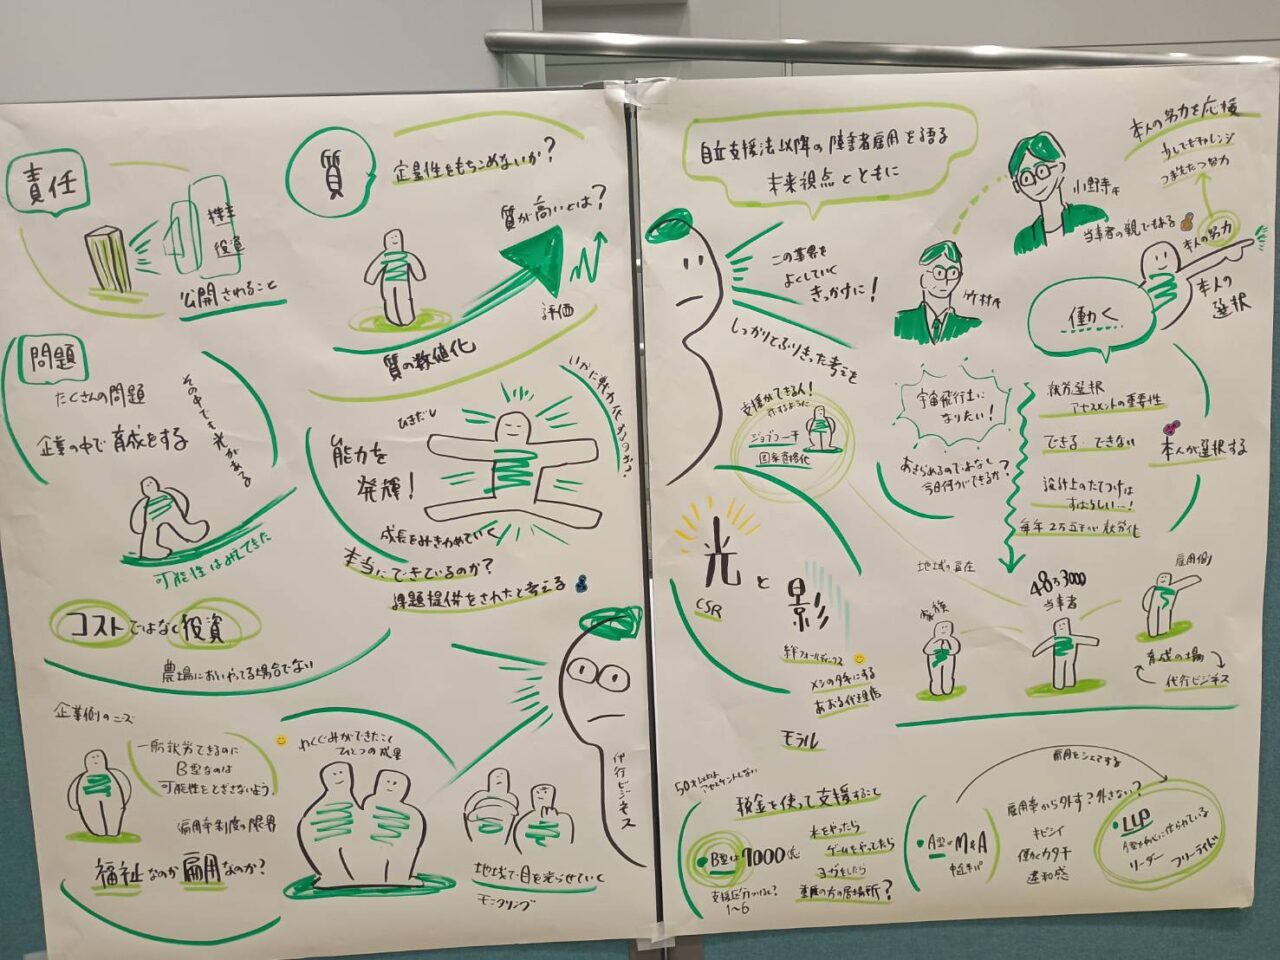 責任
株主
役員
公開されること
質
定量性をもちこめないか?
質が高いとは?
評価
質の数値化
問題
たくさんの問題
その中でも光がある
企業の中で育成をする
可能性はみえてきた
ひきだし
能力を
発揮!
いかに戦力化するのか?
成長をみきわめていく
本当にできているのか?
課題提供をされたと考える
コストではなく役資
農場においやってる場合でない
企業側のニーズ
一般就労できるのに
B型なのは
可能性をとざさないよう!
雇用率制度の限界
福祉なのか雇用なのか?
わくぐみができたこと
ひとつの成果
地域で目を光らせていく
モニタリング
代行ビジネス
自立支援法以降の障害者雇用を語る
未来視点とともに
この業界を
よくしていく
きっかけに!
しっかりとふりきった考えを
小野寺さん
竹村さん
当事者の親でもある
本人の努力を応援
少しでもチャレンジ
本人の努力
本人の
選択
働く
宇宙飛行士に
なりたい!
あきらめるのではなく
今日何ができるか?
就労選択
アセスメントの重要性
できる できない
本人が選択する
設計上のたてつけは
すばらしい…!
支援ができる人!
ジョブコーチ
国家資格化
光と影
CSR
絆ホールディングス
メシの タネにする
あおる代理店
モラル
地域の存在
家族
48万3000
当事者
雇用側
育成の場
代行ビジネス
税金を使って支援すること
・B型は7000億
支援区分ないし?
1〜6
水をやったら
ゲームをやってたら
ヨガをしたら
重度の方の居場所?
・A型のM&A
雇用をシェアする
雇用率から外す?外さない?
キビシイ
働くカタチ
違和感
・LLP
リーダー
フリーライド